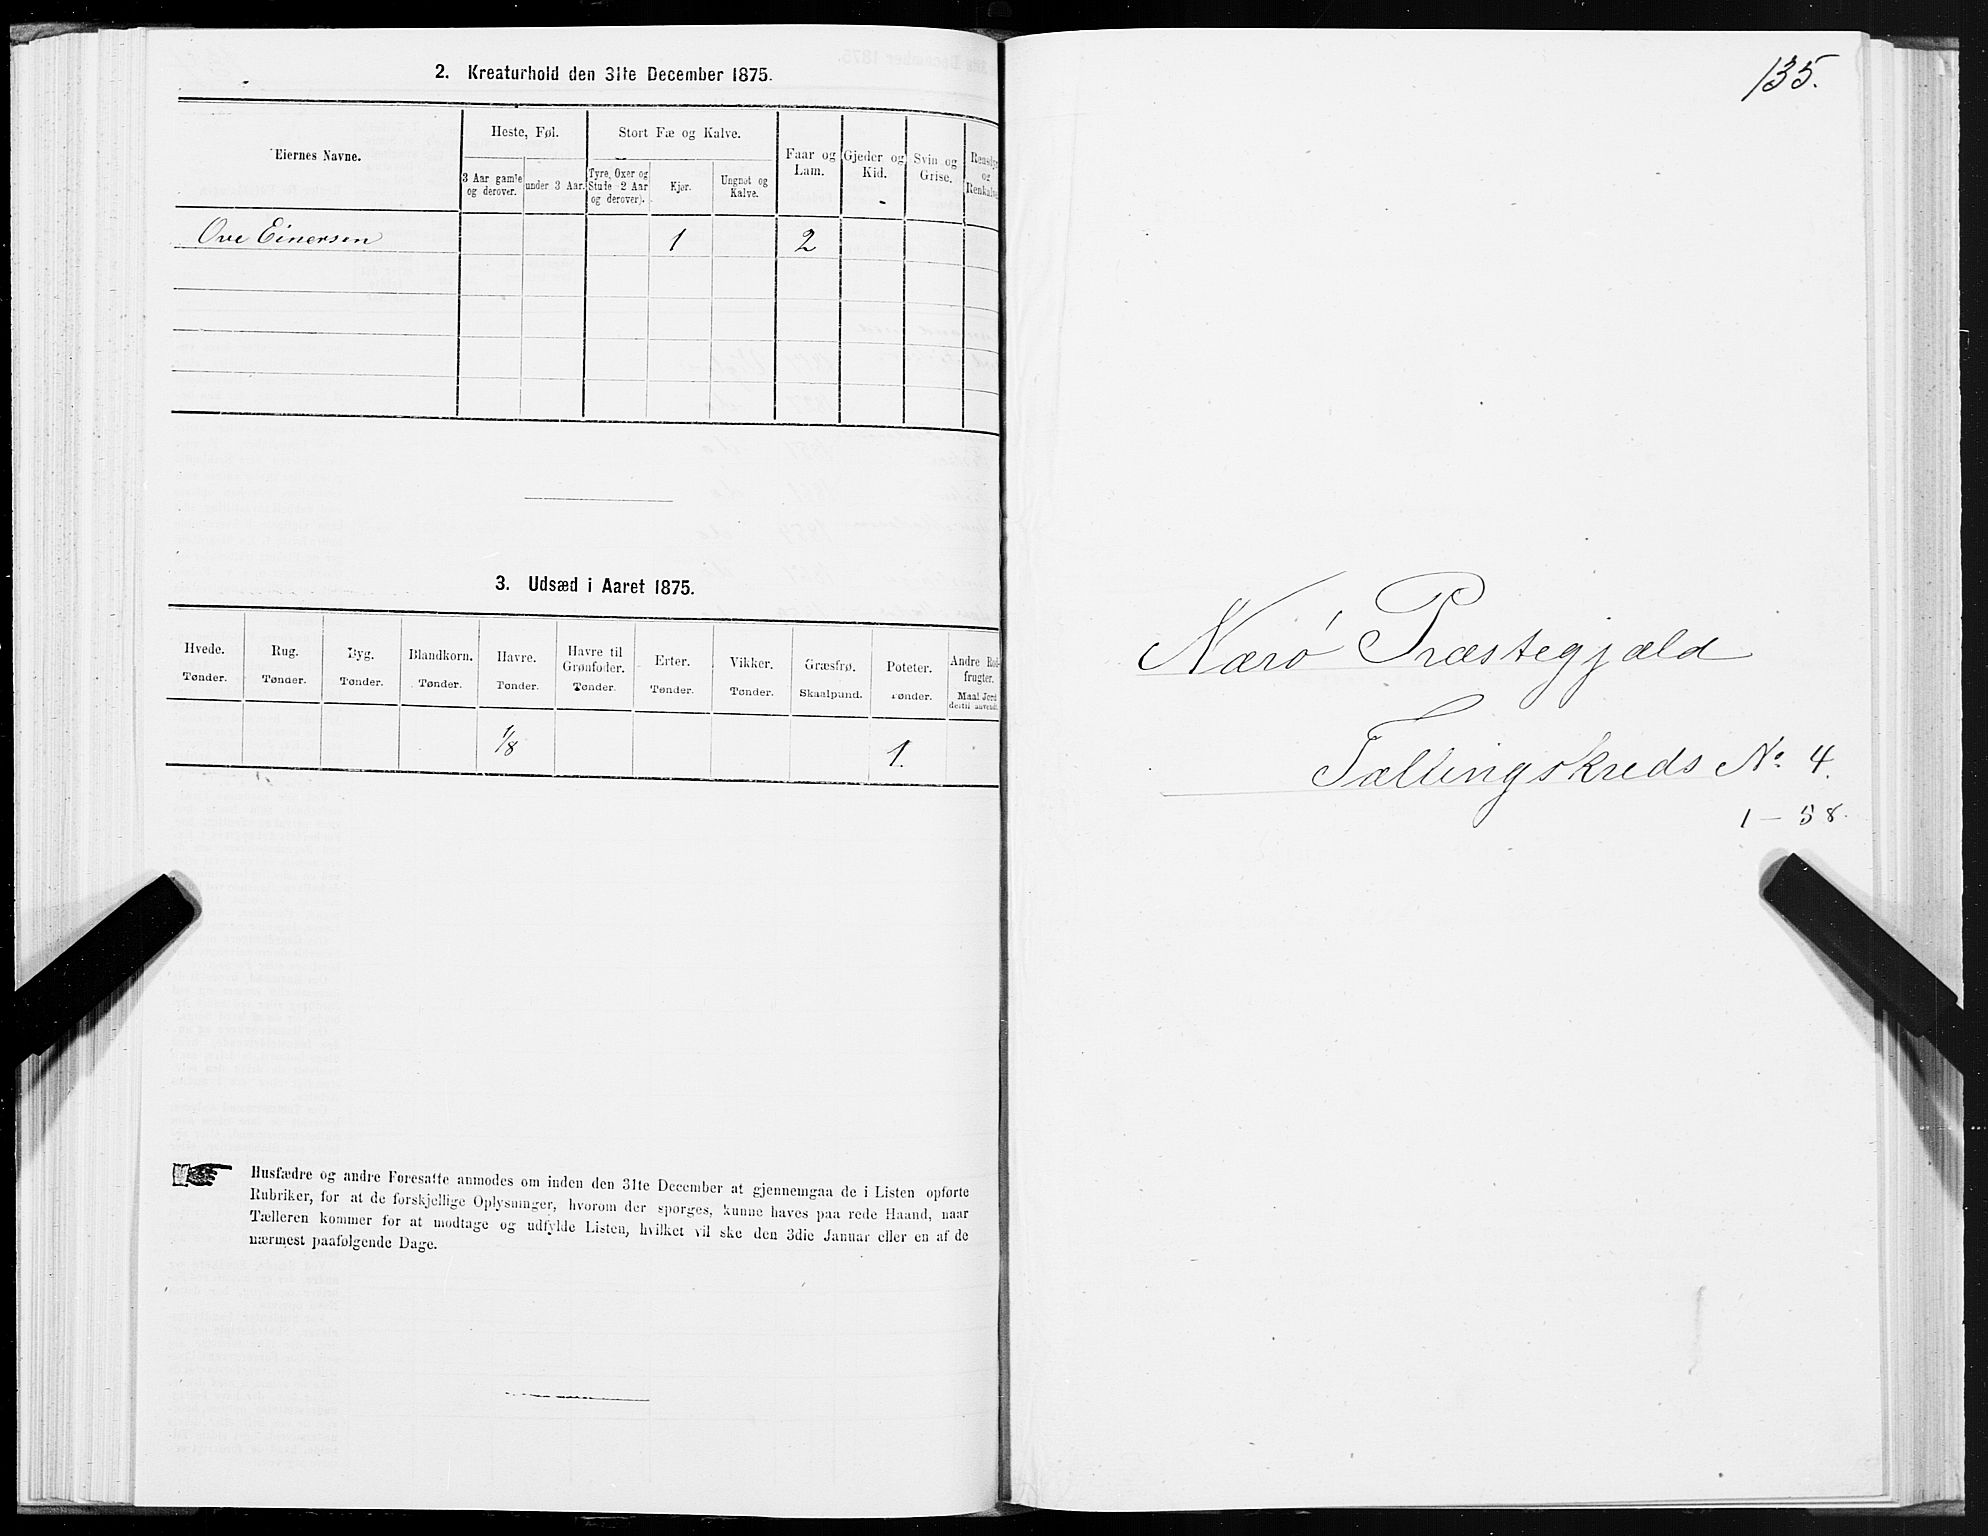 2. Kreaturhold den 31te December 1875.
Eiernes Navne.
Heste, Føl.
Stort Fæ og Kalve.
Faar og Lam.
Gjeder og Kid.
Svin og Grise.
og
3 Aar gamle og derover.
under 3 Aar.
Tyre, Oxer og Stude 2 Aar og derover).
Kjør.
Ungnøt og Kalve.
Ove Einersen 1 2
3. Udsæd i Aaret 1875.
Hvede. Rug. Byg. Blandkorn. Havre. Havre til Grønfoder. Erter. Vikker. Græsfrø. Poteter. Andre Rodfrugter.
Tønder. Tønder. Tønder. Tønder. Tønder. Tønder. Tønder. Tønder. Skaalpund. Tønder. Maal Jord dertil anvendt.
1/8 1.
Husfædre og andre Foresatte anmodes om inden den 31te December at gjennemgaa de i Listen opførte
Rubriker, for at de forskjellige Oplysninger, hvorom der spørges, kunne haves paa rede Haand, naar
Tælleren kommer for at modtage og udfylde Listen, hvilket vil ske den 3die Januar eller en af de
nærmest paafølgende Dage.
135.
Nærø Præstegjæld
Tællingskreds No. 4.
1 – 58.